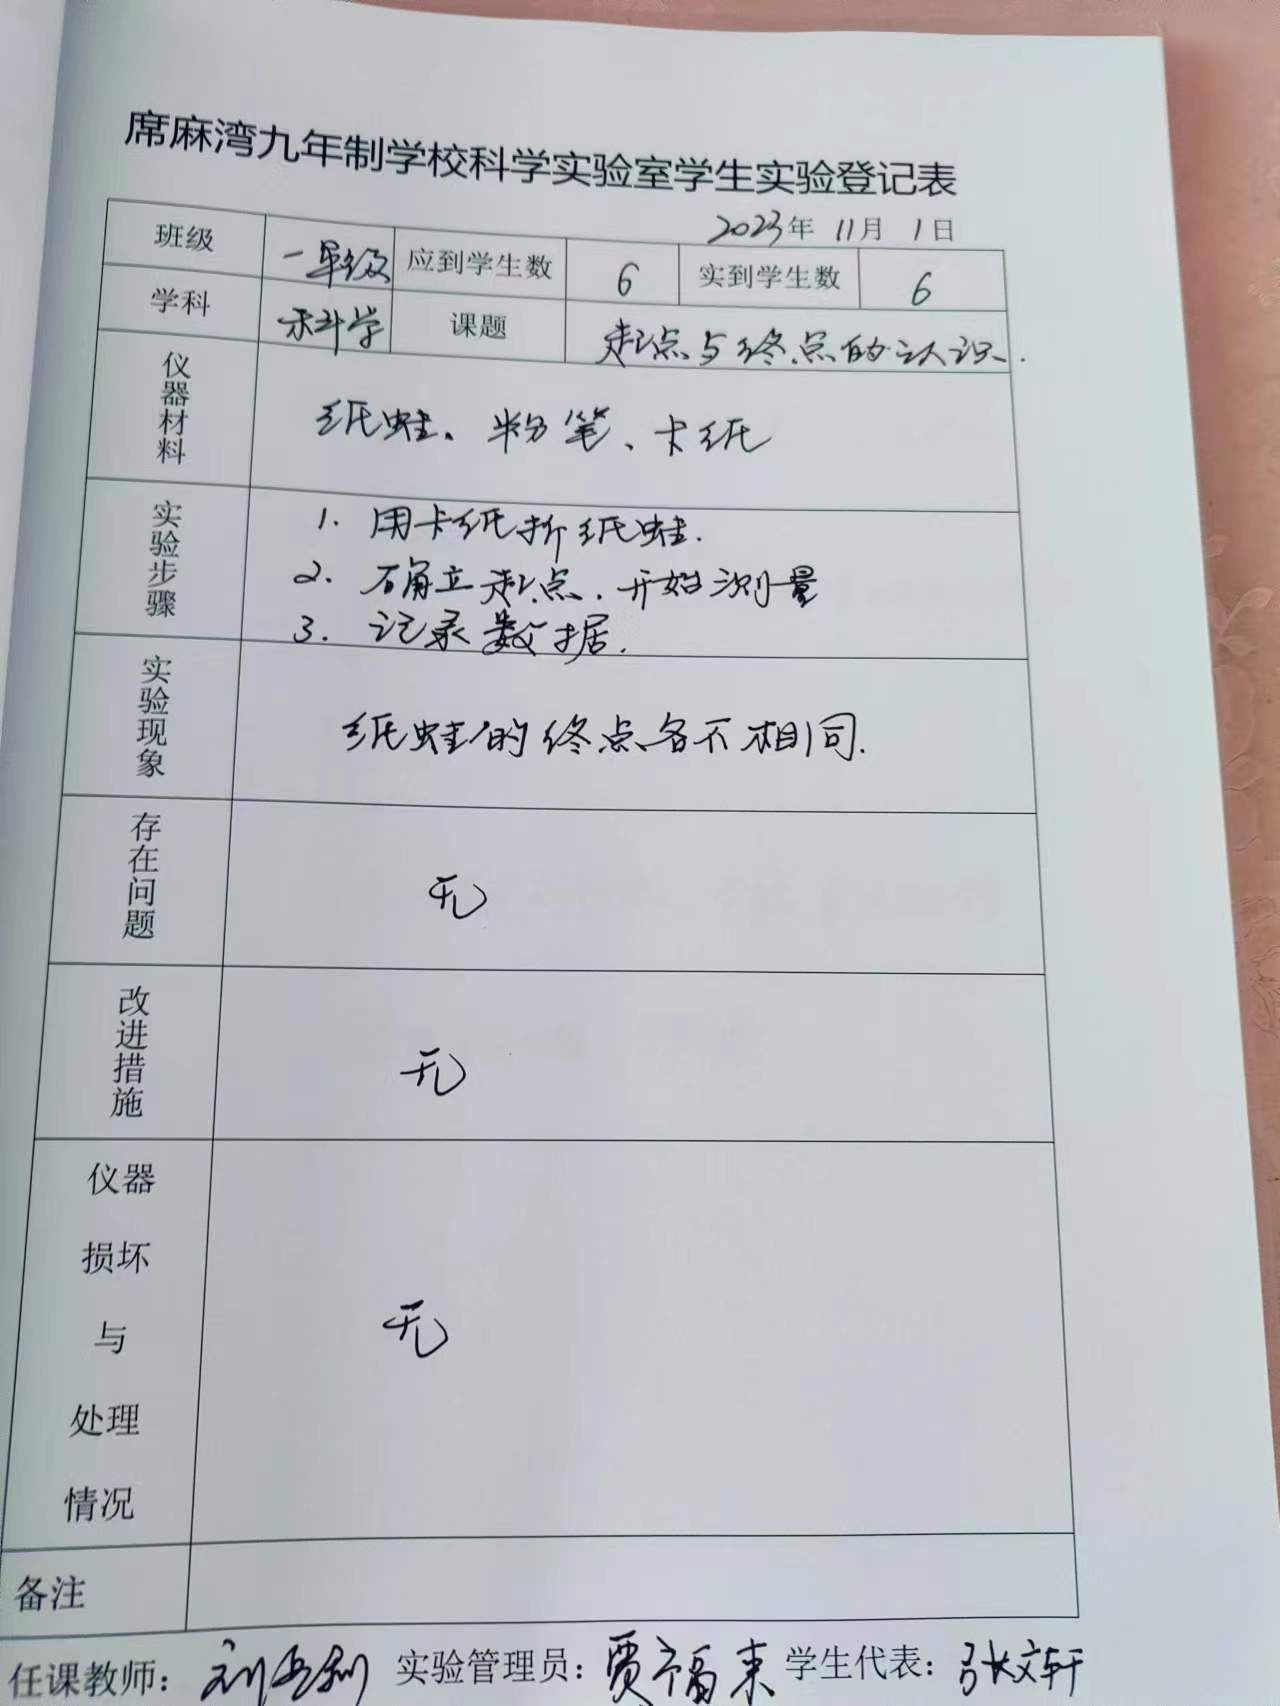 席麻湾九年制学校科学实验室学生实验登记表
2023年 11月 1日
班级 一年级 应到学生数 6 实到学生数 6
学科 科学 课题 起点与终点的认识.
仪器材料 纸蛙、粉笔、卡纸
实验步骤 1. 用卡纸折纸蛙.
2. 确立起点.开始测量
3. 记录数据.
实验现象 纸蛙的终点各不相同.
存在问题 无
改进措施 无
仪器
损坏
与 无
处理
情况
备注
任课教师: 刘 利 实验管理员: 贾福来 学生代表: 张文轩